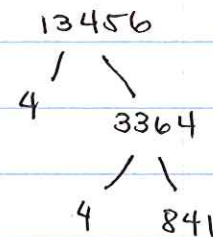 13456
4
3364
4
841